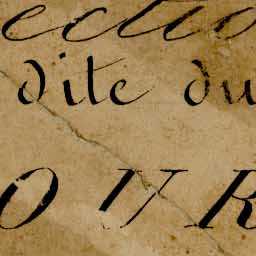 ection
dite du
OUR